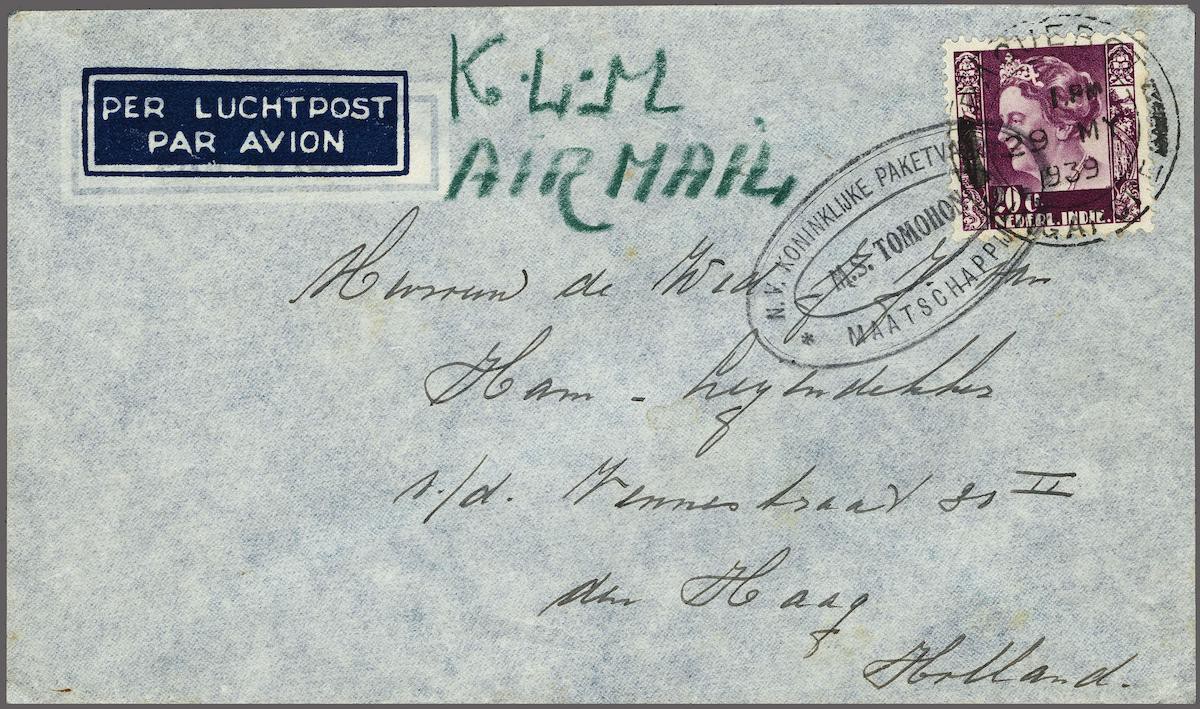 PER LUCHTPOST
PAR AVION
K.L.M
AIR MAIL
1.PM
29 MY
1939
20 c.
NEDERL. INDIE.
N.V. KONINKLIJKE PAKETVA
M.S. TOMOHON
MAATSCHAPPIJ
*
Mevrouw de Wed. J. J.
Ham - Leyendekker
v./d. Vennestraat 80 II
den Haag
Holland.